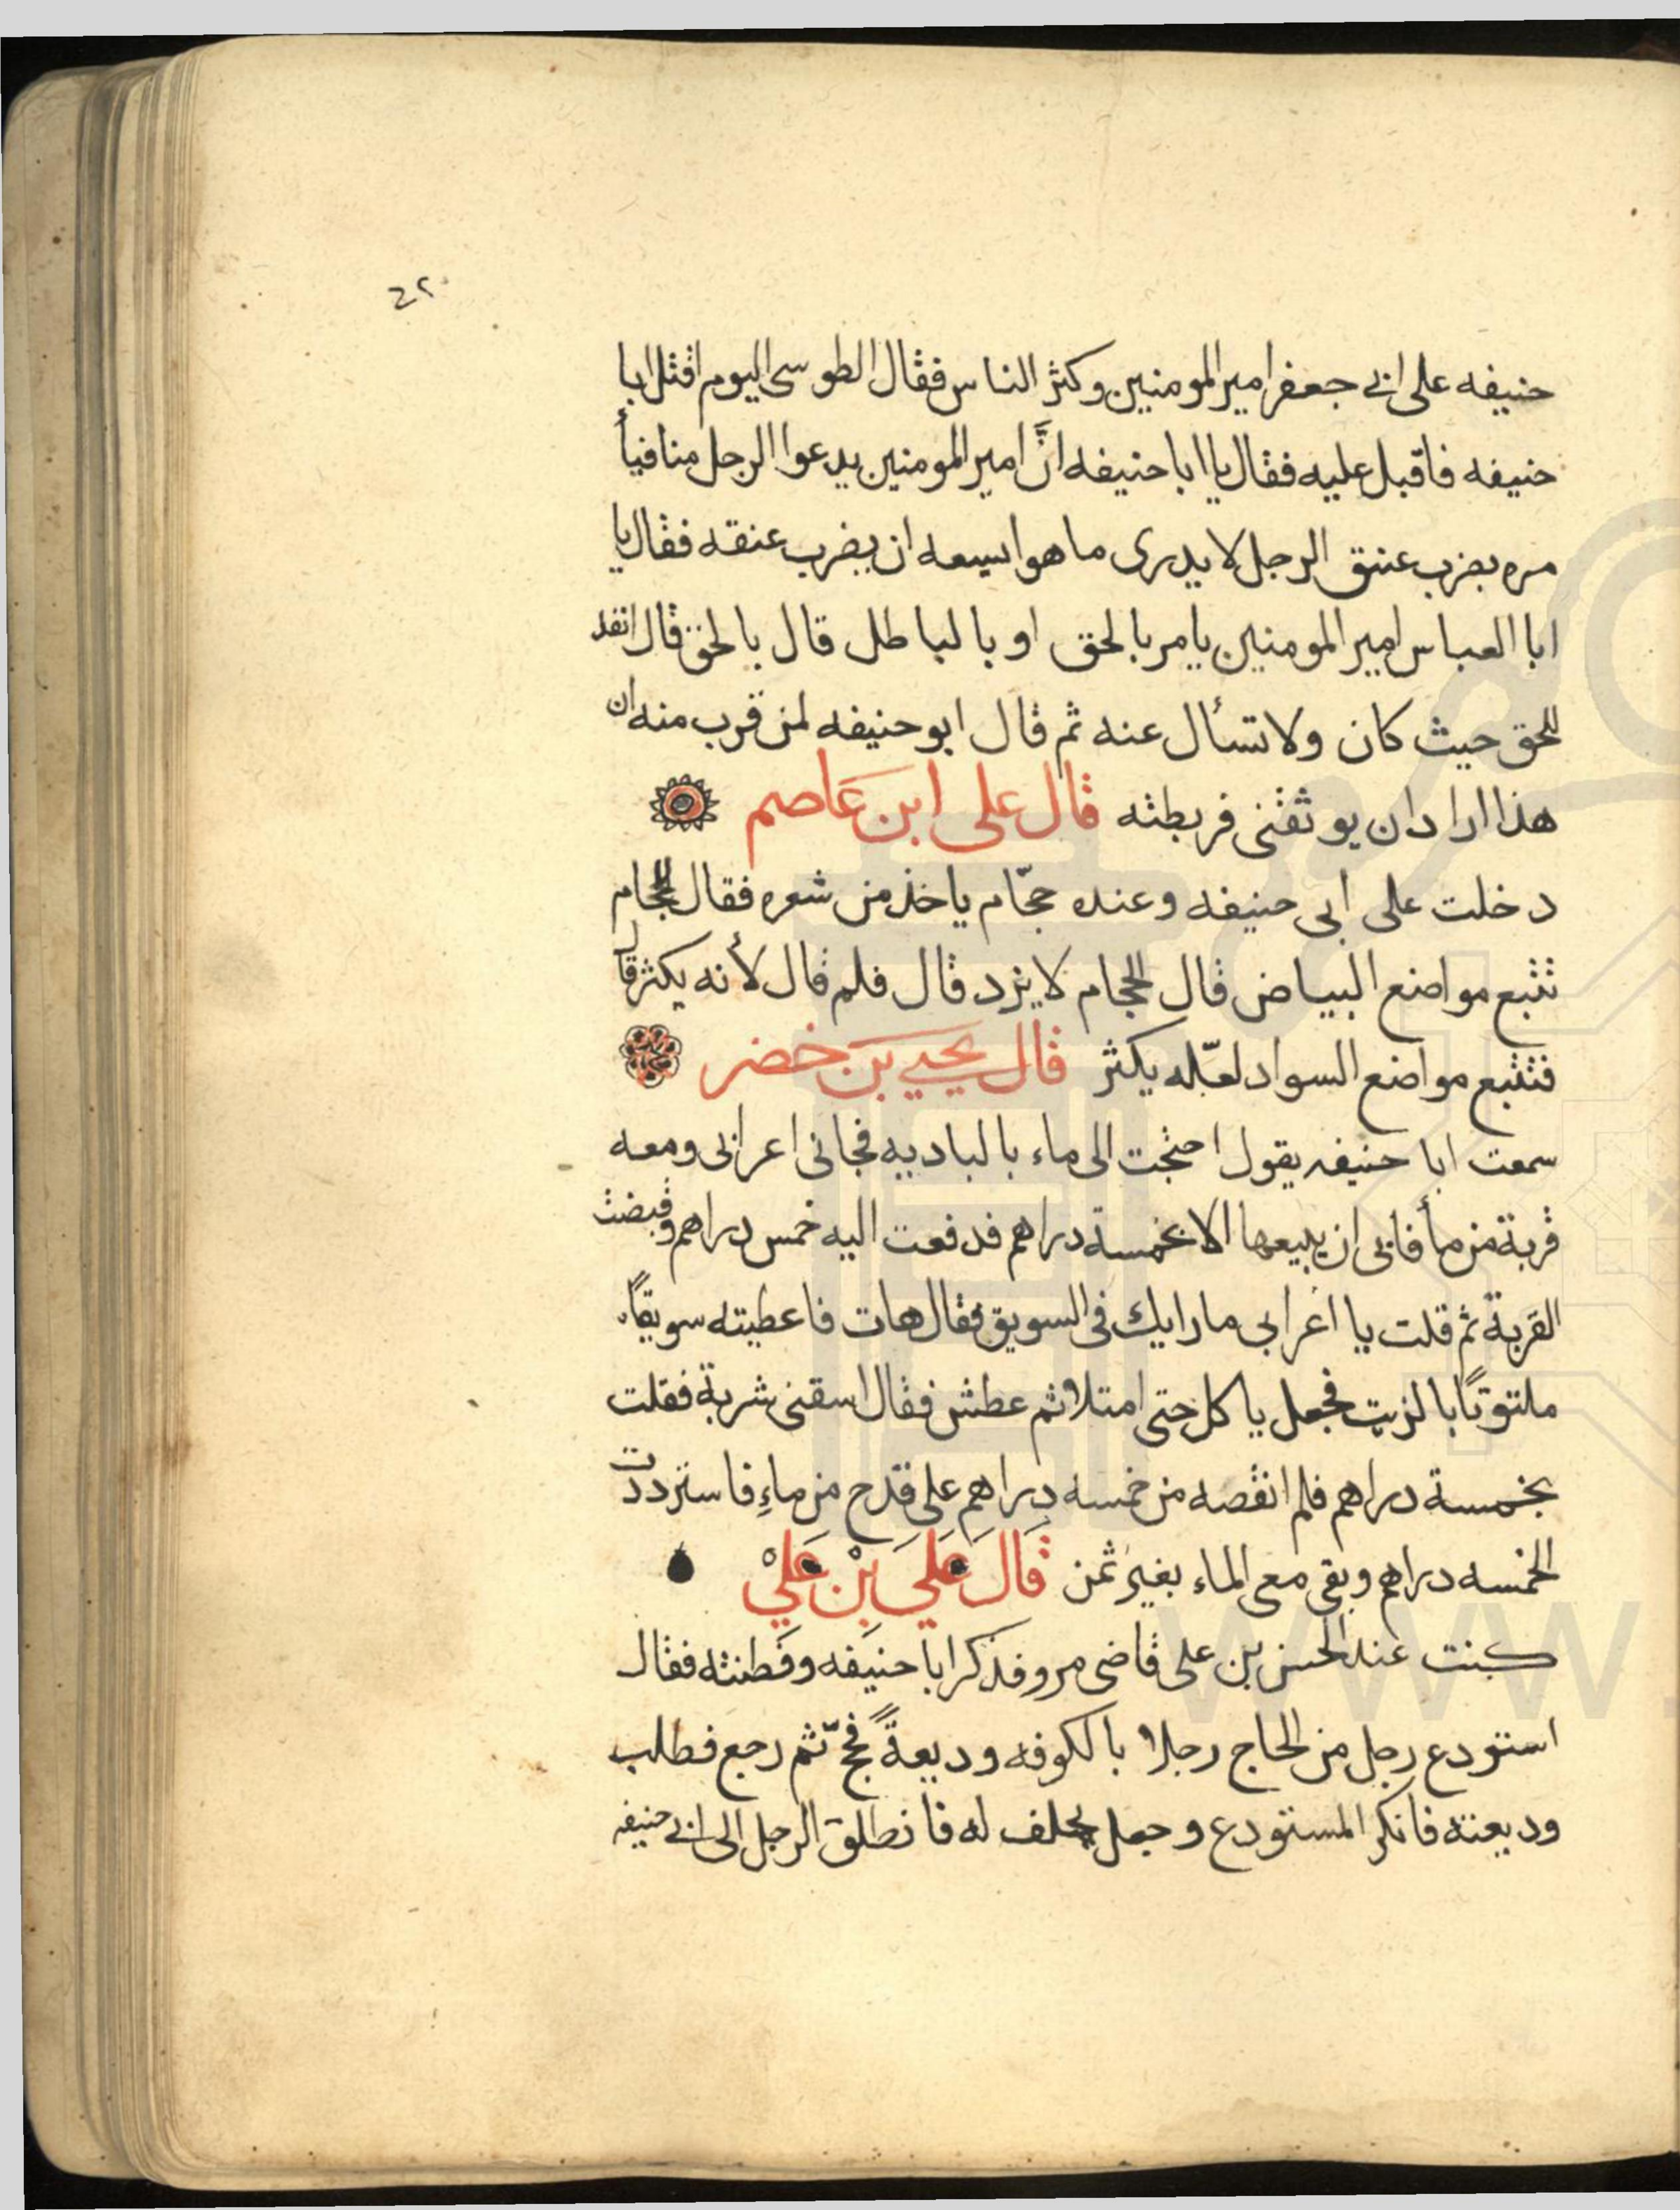 ٤٢
حنيفه على ابى جعفر امير المومنين وكثر الناس فقال الطوسى اليوم اقتل ابا
حنيفه فاقبل عليه فقال يا ابا حنيفه انَّ امير المومنين يدعوا الرجل منا فيأ
مره بضرب عنق الرجل لا يدرى ما هو ايسعه ان يضرب عنقه فقال يا
ابا العباس امير المومنين يامر بالحق او بالباطل قال بالحق قال انفد
للحق حيث كان ولا تسأل عنه ثم قال ابو حنيفه لمن قرب منه ان
هذا اراد ان يوثقنى فربطته قال على ابن عاصم
دخلت على ابى حنيفه وعنده حجّام ياخذ من شعره فقال للحجام
تتبع مواضع البياض قال الحجام لا يزد قال فلم قال لأنه يكثر قال
فتتبع مواضع السواد لعّله يكثر قال يحيى بن خضر
سمعت ابا حنيفه يقول احتجت الى ماء بالباديه فجانى اعرابى ومعه
قربة من مأ فابى ان يبيعها الا بخمسة دراهم فدفعت اليه خمس دراهم وقبضت
القربة ثم قلت يا اعرابى ما رايك فى السويق فقال هات فاعطيته سويقًا
ملتوتًا بالزيت فجعل ياكل حتى امتلا ثم عطش فقال اسقنى شربة فقلت
بخمسة دراهم فلم انقصه من خمسه دراهم على قدح من ماءٍ فاستردت
الخمسه دراهم وبقى معى الماء بغير ثمن قَالَ عَلىَ بْن عَلىْ
كنت عند الحسن بن على قاضى مرو فذكر ابا حنيفه وفطنته فقال
استودع رجل من الحاج رجلا بالكوفه وديعةً فحجّ ثم رجع فطلب
وديعته فانكر المستودع وجعل يحلف له فانطلق الرجل الى ابى حنيفه